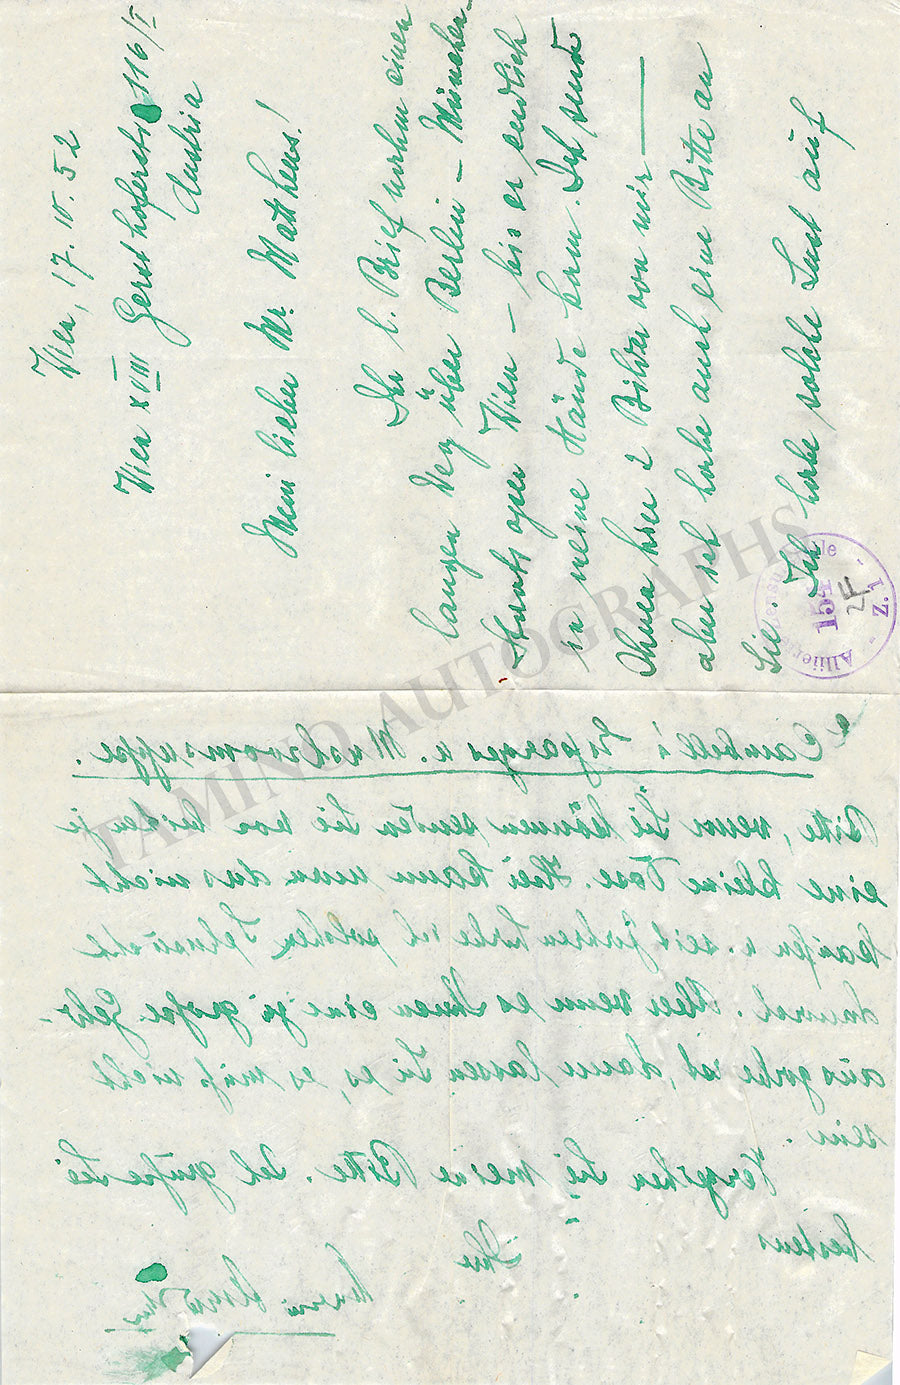 Wien, 17. IV. 52
Wien XVIII Gersthoferstr. 116/I
Austria
Mein lieber Mr. Matthews!
Ihr l. Brief nahm einen
langen Weg über Berlin – München –
Staatsoper Wien – bis er endlich
in meine Hände kam. Ich sende
Ihnen hier 2 Bilder von mir —
aber ich habe auch eine Bitte an
Sie. Ich habe solche Lust auf
Alliierte Zensurstelle
154
Z. 1
Cambell's Spargel u. Mushroomsuppe.
Bitte, wenn Sie können senden Sie von beiden je
eine kleine Dose. Hier kann man das nicht
kaufen u. seit Jahren habe ich solchen Sehnsucht
danach. Aber wenn es Ihnen eine zu große Geld-
ausgabe ist, dann lassen Sie es, es muß nicht
sein.
Verzeihen Sie meine Bitte. Ich grüße Sie
bestens
Ihre
TAMINO AUTOGRAPHS